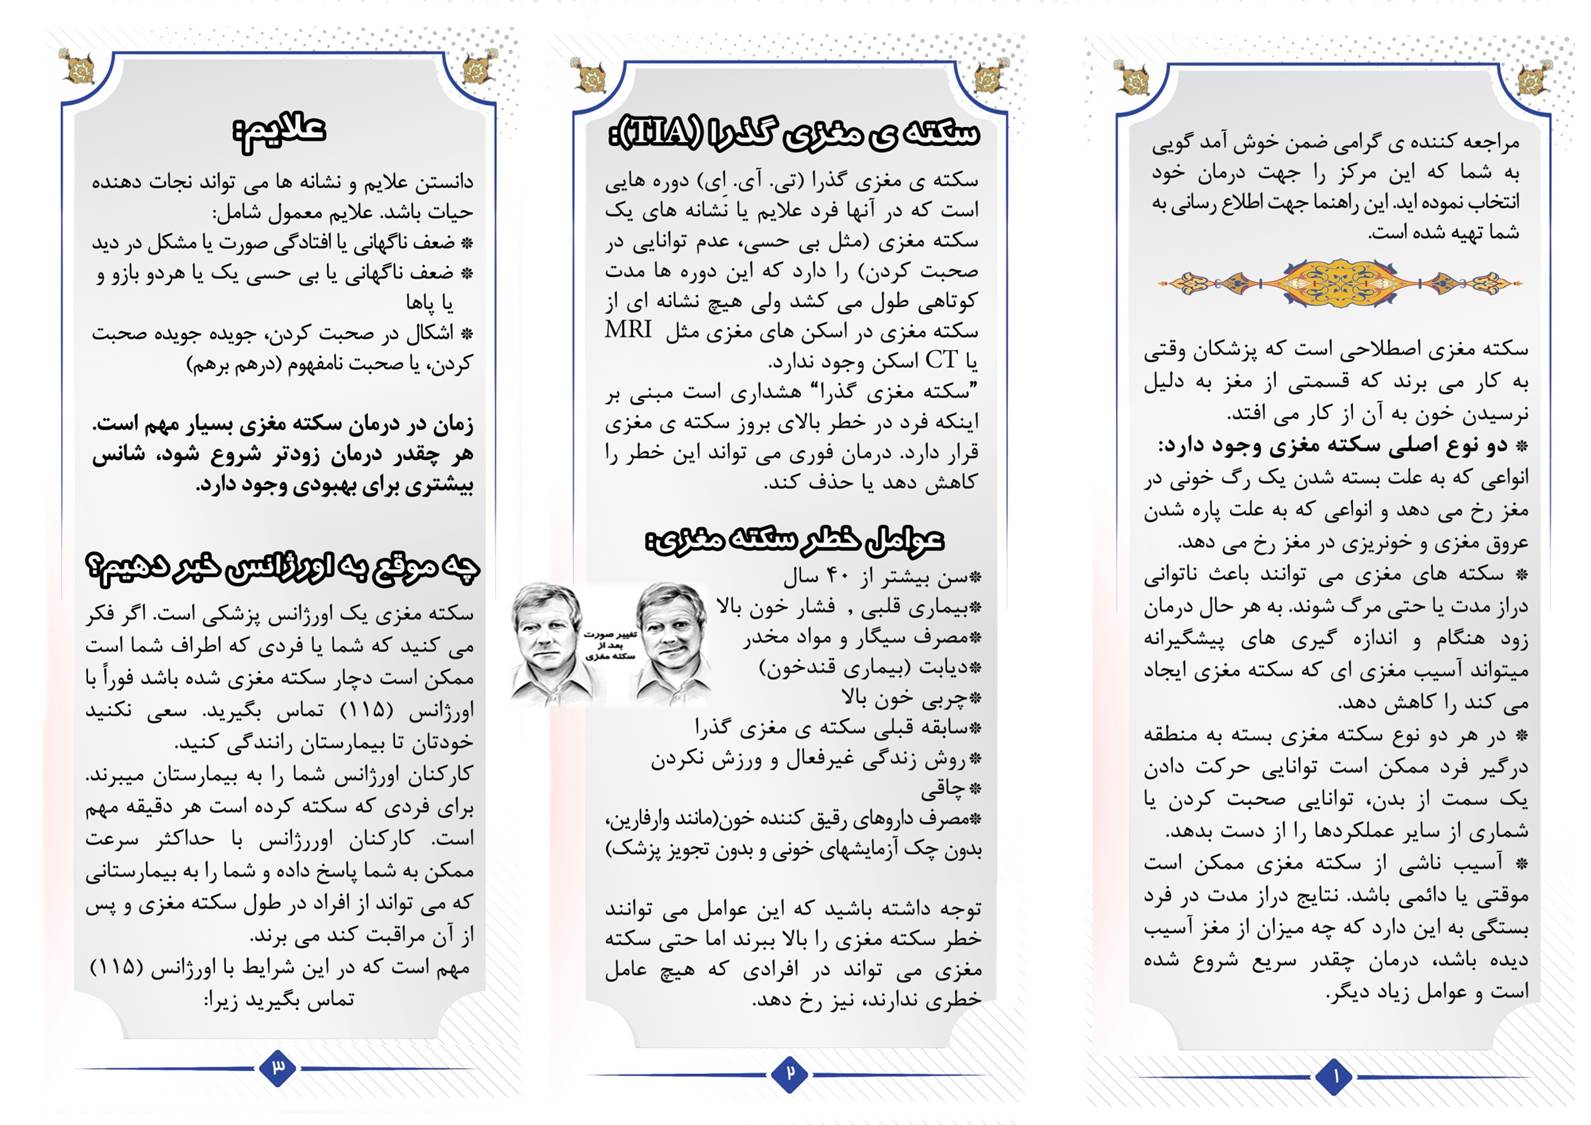 مراجعه کننده ی گرامی ضمن خوش آمد گویی
به شما که این مرکز را جهت درمان خود
انتخاب نموده اید. این راهنما جهت اطلاع رسانی به
شما تهیه شده است.
سکته مغزی اصطلاحی است که پزشکان وقتی
به کار می برند که قسمتی از مغز به دلیل
نرسیدن خون به آن از کار می افتد.
* دو نوع اصلی سکته مغزی وجود دارد:
انواعی که به علت بسته شدن یک رگ خونی در
مغز رخ می دهد و انواعی که به علت پاره شدن
عروق مغزی و خونریزی در مغز رخ می دهد.
* سکته های مغزی می توانند باعث ناتوانی
دراز مدت یا حتی مرگ شوند. به هر حال درمان
زود هنگام و اندازه گیری های پیشگیرانه
میتواند آسیب مغزی ای که سکته مغزی ایجاد
می کند را کاهش دهد.
* در هر دو نوع سکته مغزی بسته به منطقه
درگیر فرد ممکن است توانایی حرکت دادن
یک سمت از بدن، توانایی صحبت کردن یا
شماری از سایر عملکردها را از دست بدهد.
* آسیب ناشی از سکته مغزی ممکن است
موقتی یا دائمی باشد. نتایج دراز مدت در فرد
بستگی به این دارد که چه میزان از مغز آسیب
دیده باشد، درمان چقدر سریع شروع شده
است و عوامل زیاد دیگر.
۱
سکته ی مغزی گذرا (TIA):
سکته ی مغزی گذرا (تی. آی. اِی) دوره هایی
است که در آنها فرد علایم یا نشانه های یک
سکته مغزی (مثل بی حسی، عدم توانایی در
صحبت کردن) را دارد که این دوره ها مدت
کوتاهی طول می کشد ولی هیچ نشانه ای از
سکته مغزی در اسکن های مغزی مثل MRI
یا CT اسکن وجود ندارد.
”سکته مغزی گذرا“ هشداری است مبنی بر
اینکه فرد در خطر بالای بروز سکته ی مغزی
قرار دارد. درمان فوری می تواند این خطر را
کاهش دهد یا حذف کند.
عوامل خطر سکته مغزی:
*سن بیشتر از ۴۰ سال
*بیماری قلبی , فشار خون بالا
*مصرف سیگار و مواد مخدر
*دیابت (بیماری قندخون)
*چربی خون بالا
*سابقه قبلی سکته ی مغزی گذرا
*روش زندگی غیرفعال و ورزش نکردن
*چاقی
*مصرف داروهای رقیق کننده خون(مانند وارفارین،
بدون چک آزمایشهای خونی و بدون تجویز پزشک)
تغییر صورت
بعد از
سکته مغزی
توجه داشته باشید که این عوامل می توانند
خطر سکته مغزی را بالا ببرند اما حتی سکته
مغزی می تواند در افرادی که هیچ عامل
خطری ندارند، نیز رخ دهد.
۲
علایم:
دانستن علایم و نشانه ها می تواند نجات دهنده
حیات باشد. علایم معمول شامل:
* ضعف ناگهانی یا افتادگی صورت یا مشکل در دید
* ضعف ناگهانی یا بی حسی یک یا هردو بازو و
یا پاها
* اشکال در صحبت کردن، جویده جویده صحبت
کردن، یا صحبت نامفهوم (درهم برهم)
زمان در درمان سکته مغزی بسیار مهم است.
هر چقدر درمان زودتر شروع شود، شانس
بیشتری برای بهبودی وجود دارد.
چه موقع به اورژانس خبر دهیم؟
سکته مغزی یک اورژانس پزشکی است. اگر فکر
می کنید که شما یا فردی که اطراف شما است
ممکن است دچار سکته مغزی شده باشد فوراً با
اورژانس (۱۱۵) تماس بگیرید. سعی نکنید
خودتان تا بیمارستان رانندگی کنید.
کارکنان اورژانس شما را به بیمارستان میبرند.
برای فردی که سکته کرده است هر دقیقه مهم
است. کارکنان اوررژانس با حداکثر سرعت
ممکن به شما پاسخ داده و شما را به بیمارستانی
که می تواند از افراد در طول سکته مغزی و پس
از آن مراقبت کند می برند.
مهم است که در این شرایط با اورژانس (۱۱۵)
تماس بگیرید زیرا:
۳